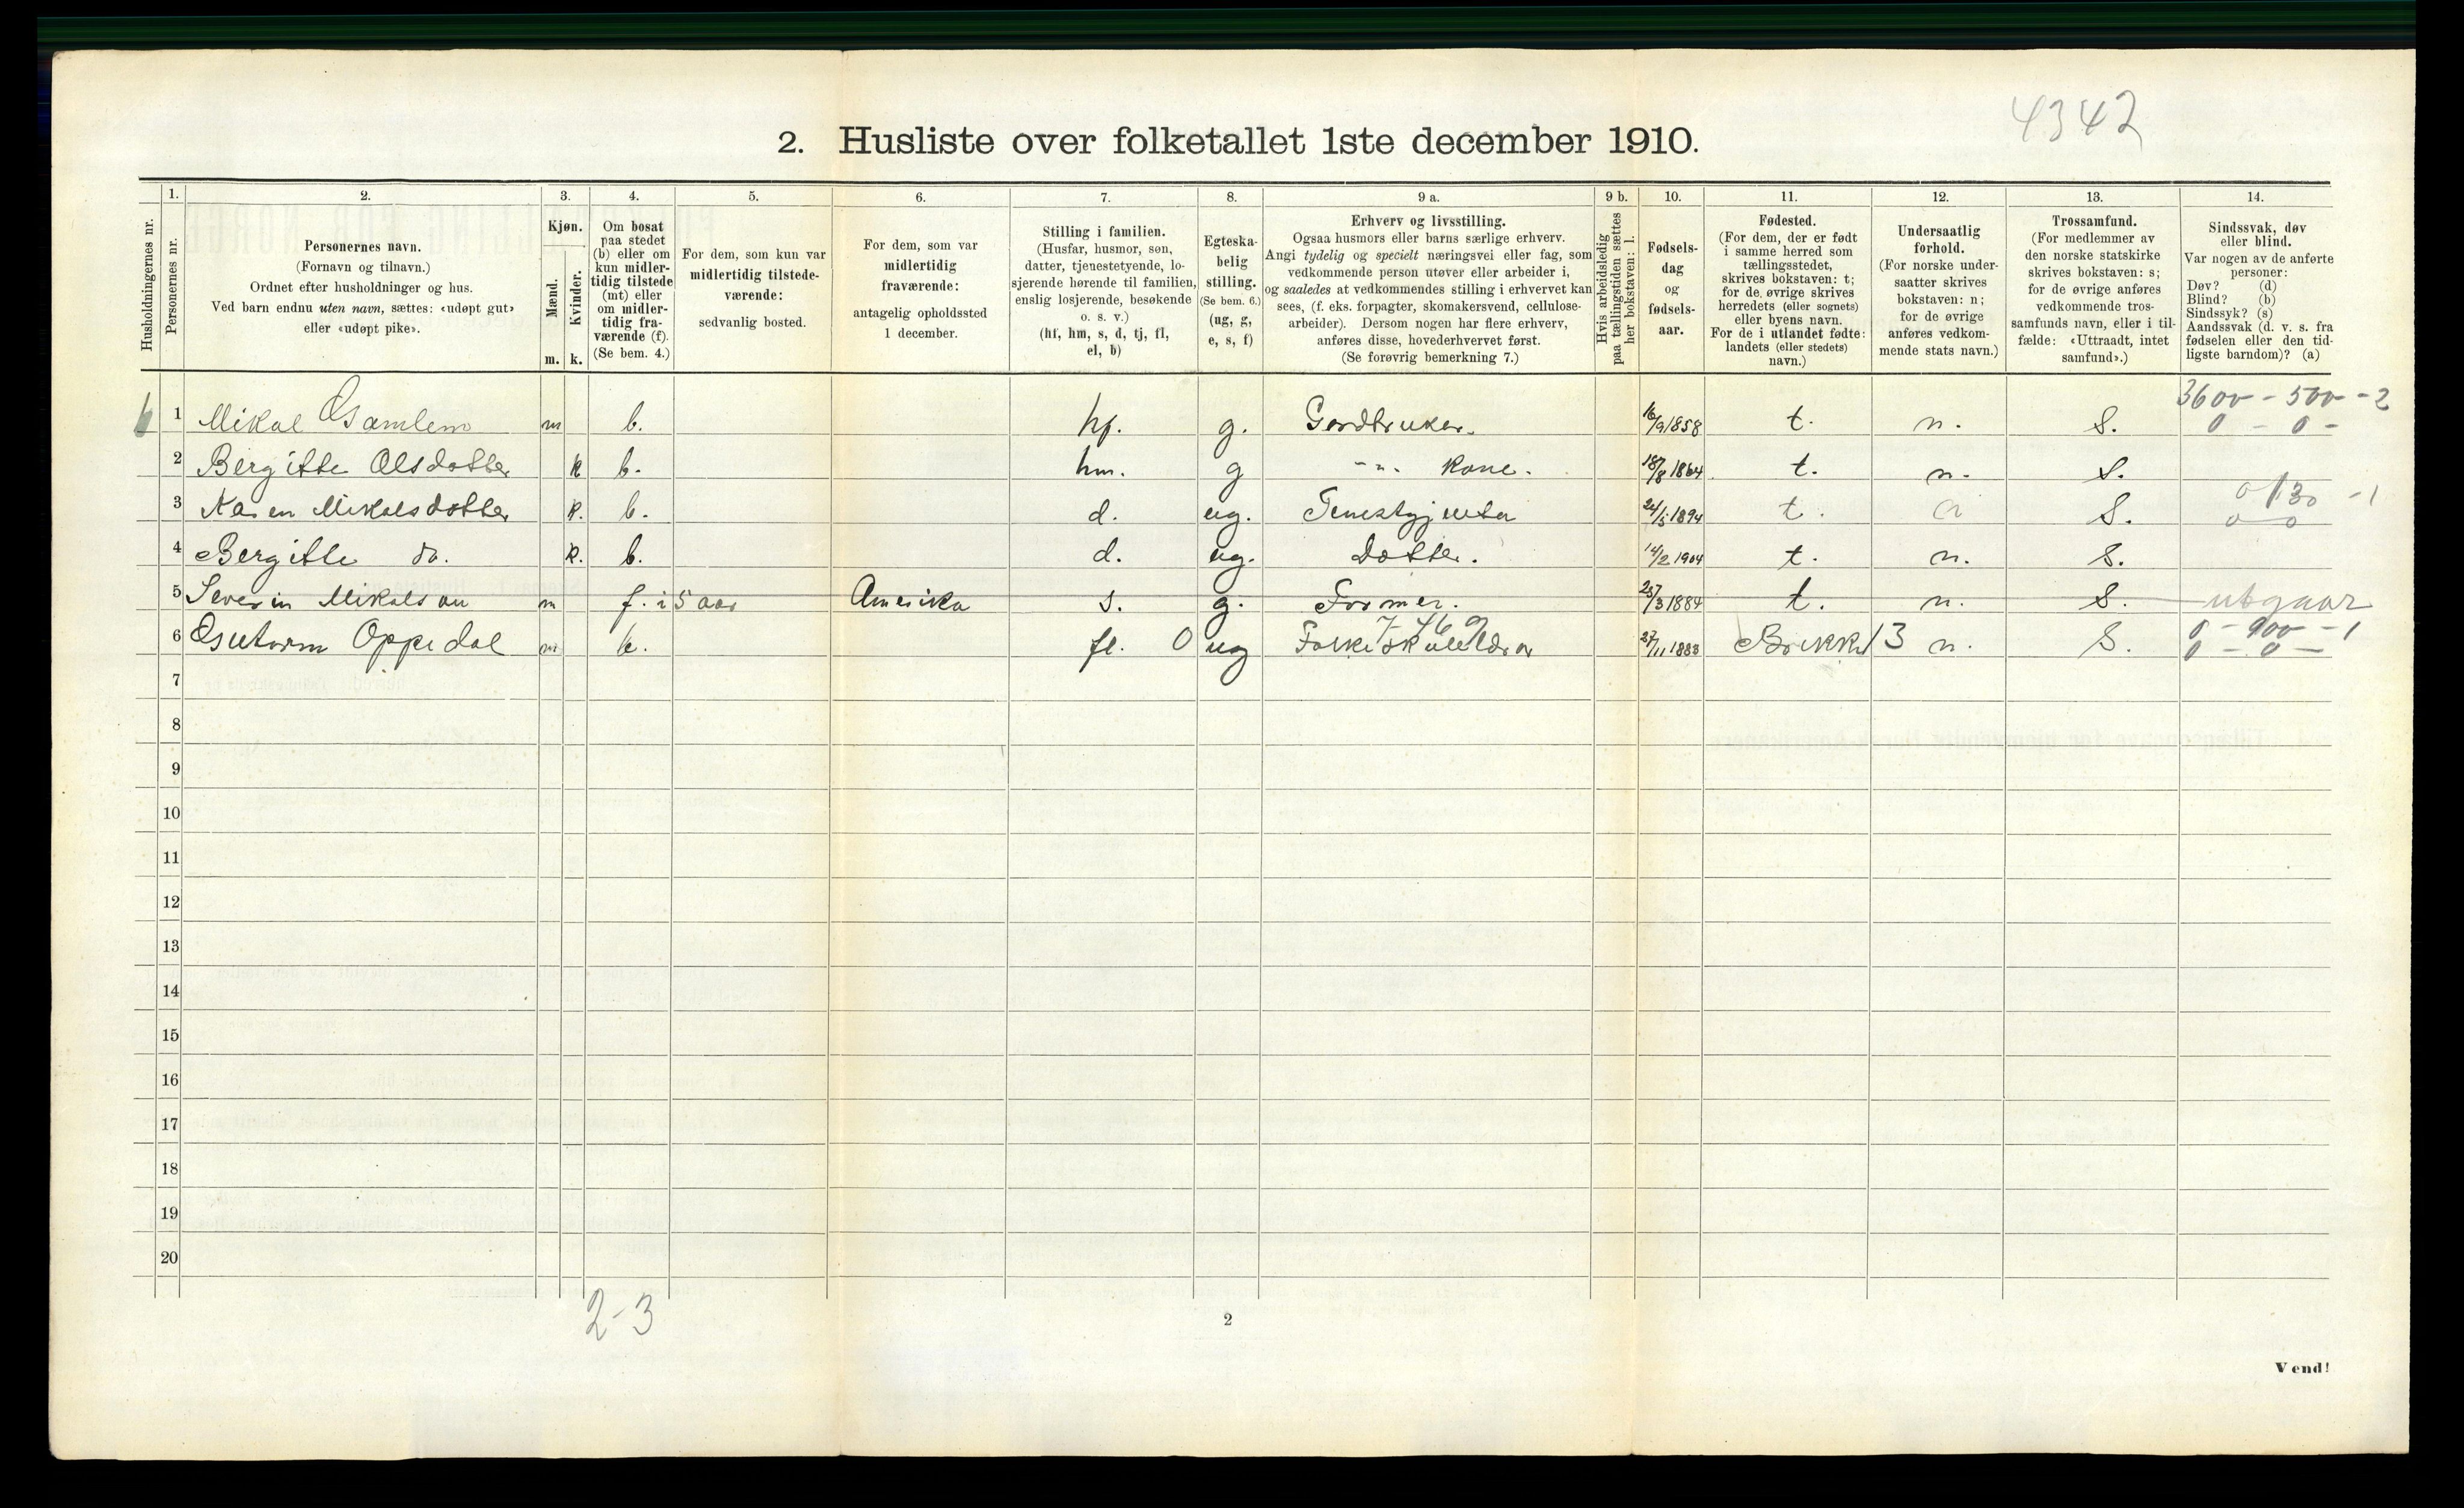 4342
2. Husliste over folketallet 1ste december 1910.
Husholdningernes nr.
1. Personernes nr.
2. Personernes navn.
(Fornavn og tilnavn.)
Ordnet efter husholdninger og hus.
Ved barn endnu uten navn, sættes: «udøpt gut»
eller «udøpt pike».
3. Kjøn.
Mænd. m.
Kvinder. k.
4. Om bosat
paa stedet
(b) eller om
kun midler-
tidig tilstede
(mt) eller
om midler-
tidig fra-
værende (f).
(Se bem. 4.)
5. For dem, som kun var
midlertidig tilstede-
værende:
sedvanlig bosted.
6. For dem, som var
midlertidig
fraværende:
antagelig opholdssted
1 december.
7. Stilling i familien.
(Husfar, husmor, søn,
datter, tjenestetyende, lo-
sjerende hørende til familien,
enslig losjerende, besøkende
o. s. v.)
(hf, hm, s, d, tj, fl,
el, b)
8. Egteska-
belig
stilling.
(Se bem. 6.)
(ug, g,
e, s, f)
9 a. Erhverv og livsstilling.
Ogsaa husmors eller barns særlige erhverv.
Angi tydelig og specielt næringsvei eller fag, som
vedkommende person utøver eller arbeider i,
og saaledes at vedkommendes stilling i erhvervet kan
sees, (f. eks. forpagter, skomakersvend, cellulose-
arbeider). Dersom nogen har flere erhverv,
anføres disse, hovederhvervet først.
(Se forøvrig bemerkning 7.)
9 b. Hvis arbeidsledig
paa tællingstiden sættes
her bokstaven: l.
10. Fødsels-
dag
og
fødsels-
aar.
11. Fødested.
(For dem, der er født
i samme herred som
tællingsstedet,
skrives bokstaven: t;
for de øvrige skrives
herredets (eller sognets)
eller byens navn.
For de i utlandet fødte:
landets (eller stedets)
navn.)
12. Undersaatlig
forhold.
(For norske under-
saatter skrives
bokstaven: n;
for de øvrige
anføres vedkom-
mende stats navn.)
13. Trossamfund.
(For medlemmer av
den norske statskirke
skrives bokstaven: s;
for de øvrige anføres
vedkommende tros-
samfunds navn, eller i til-
fælde: «Uttraadt, intet
samfund».)
14. Sindssvak, døv
eller blind.
Var nogen av de anførte
personer:
Døv? (d)
Blind? (b)
Sindssyk? (s)
Aandssvak (d. v. s. fra
fødselen eller den tid-
ligste barndom)? (a)
3600 - 500 - 2
1 Mikal Osamlem m b. hf. g. Gardbruker. 16/9 1858 t. n. S. 0 - 0 -
2 Bergitte Olsdotter k b. hm. g -"- Kone. 18/8 1864 t. n. S.
0 130 - 1
3 Karen Mikalsdotter k. b. d. ug. Tenestgjenta 24/5 1894 t. S. 0 0
4 Bergitte do. k. b. d. ug. Dotter. 14/2 1904 t. n. S.
5 Severin Mikalson m f. i 5 aar Amerika s. g. Farmer. 23/3 1884 t. n. S. utgaar
0 - 900 - 1
6 Oppedal m b. fl. 0 ug 27/11 1883 13 n. S. 0 - 0 -
7
8
9
10
11
12
13
14
15
16
17
18
19
20
2-3
2
Vend!